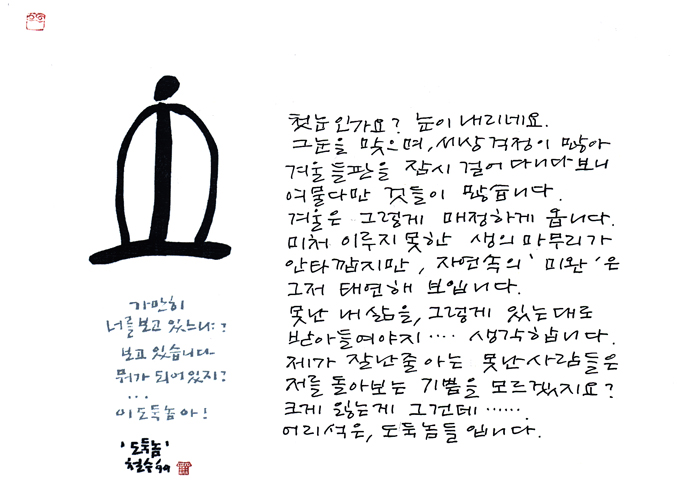 가만히
너를 보고 있느냐?
보고 있습니다
뭐가 되어있지?
...
이 도둑놈아!
'도둑놈'
철수 99
첫눈인가요? 눈이 내리네요.
그 눈을 맞으며, 세상 걱정이 많아
겨울 들판을 잠시 걸어 다니다 보니
여물다만 것들이 많습니다.
겨울은 그렇게 매정하게 옵니다.
미처 이루지 못한 생의 마무리가
안타깝지만, 자연속의 '미완'은
그저 태연해 보입니다.
못난 내 삶을, 그렇게 있는대로
받아들여야지···· 생각합니다.
제가 잘난줄 아는 못난 사람들은
저를 돌아보는 기쁨을 모르겠지요?
크게 잃는게 그건데······
어리석은, 도둑놈들입니다.